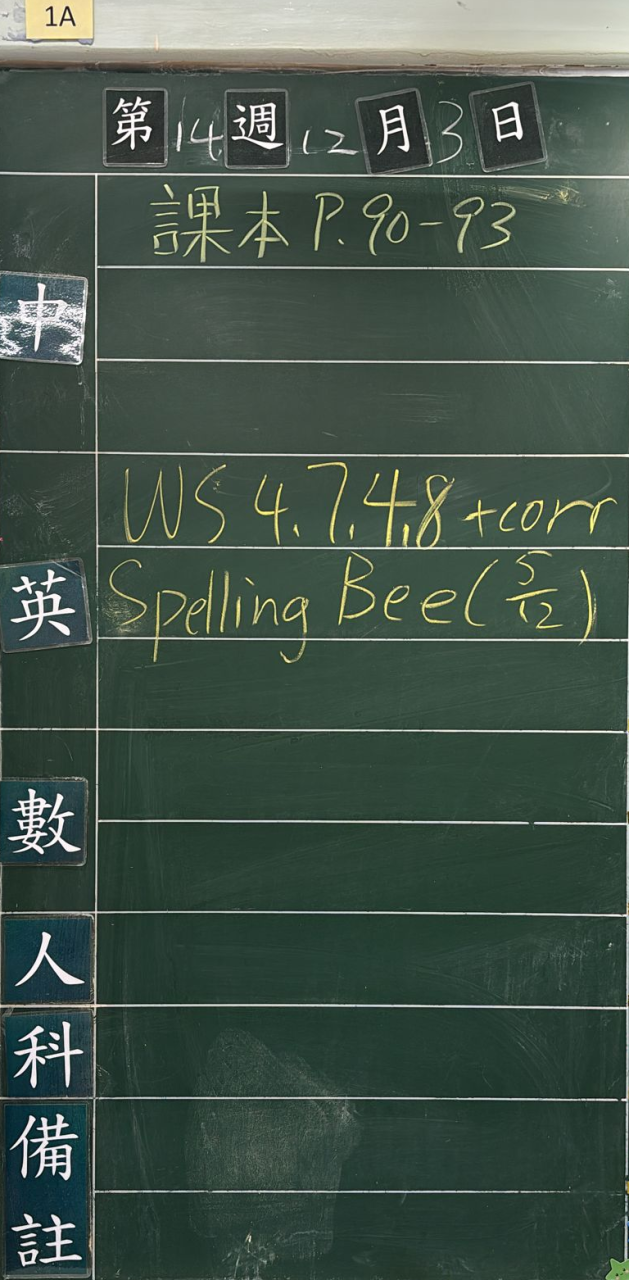 1A
第14週12月3日
課本 P.90-93
中
WS 4.7,4.8 +corr
英
Spelling Bee (5/12)
數
人
科
備
註